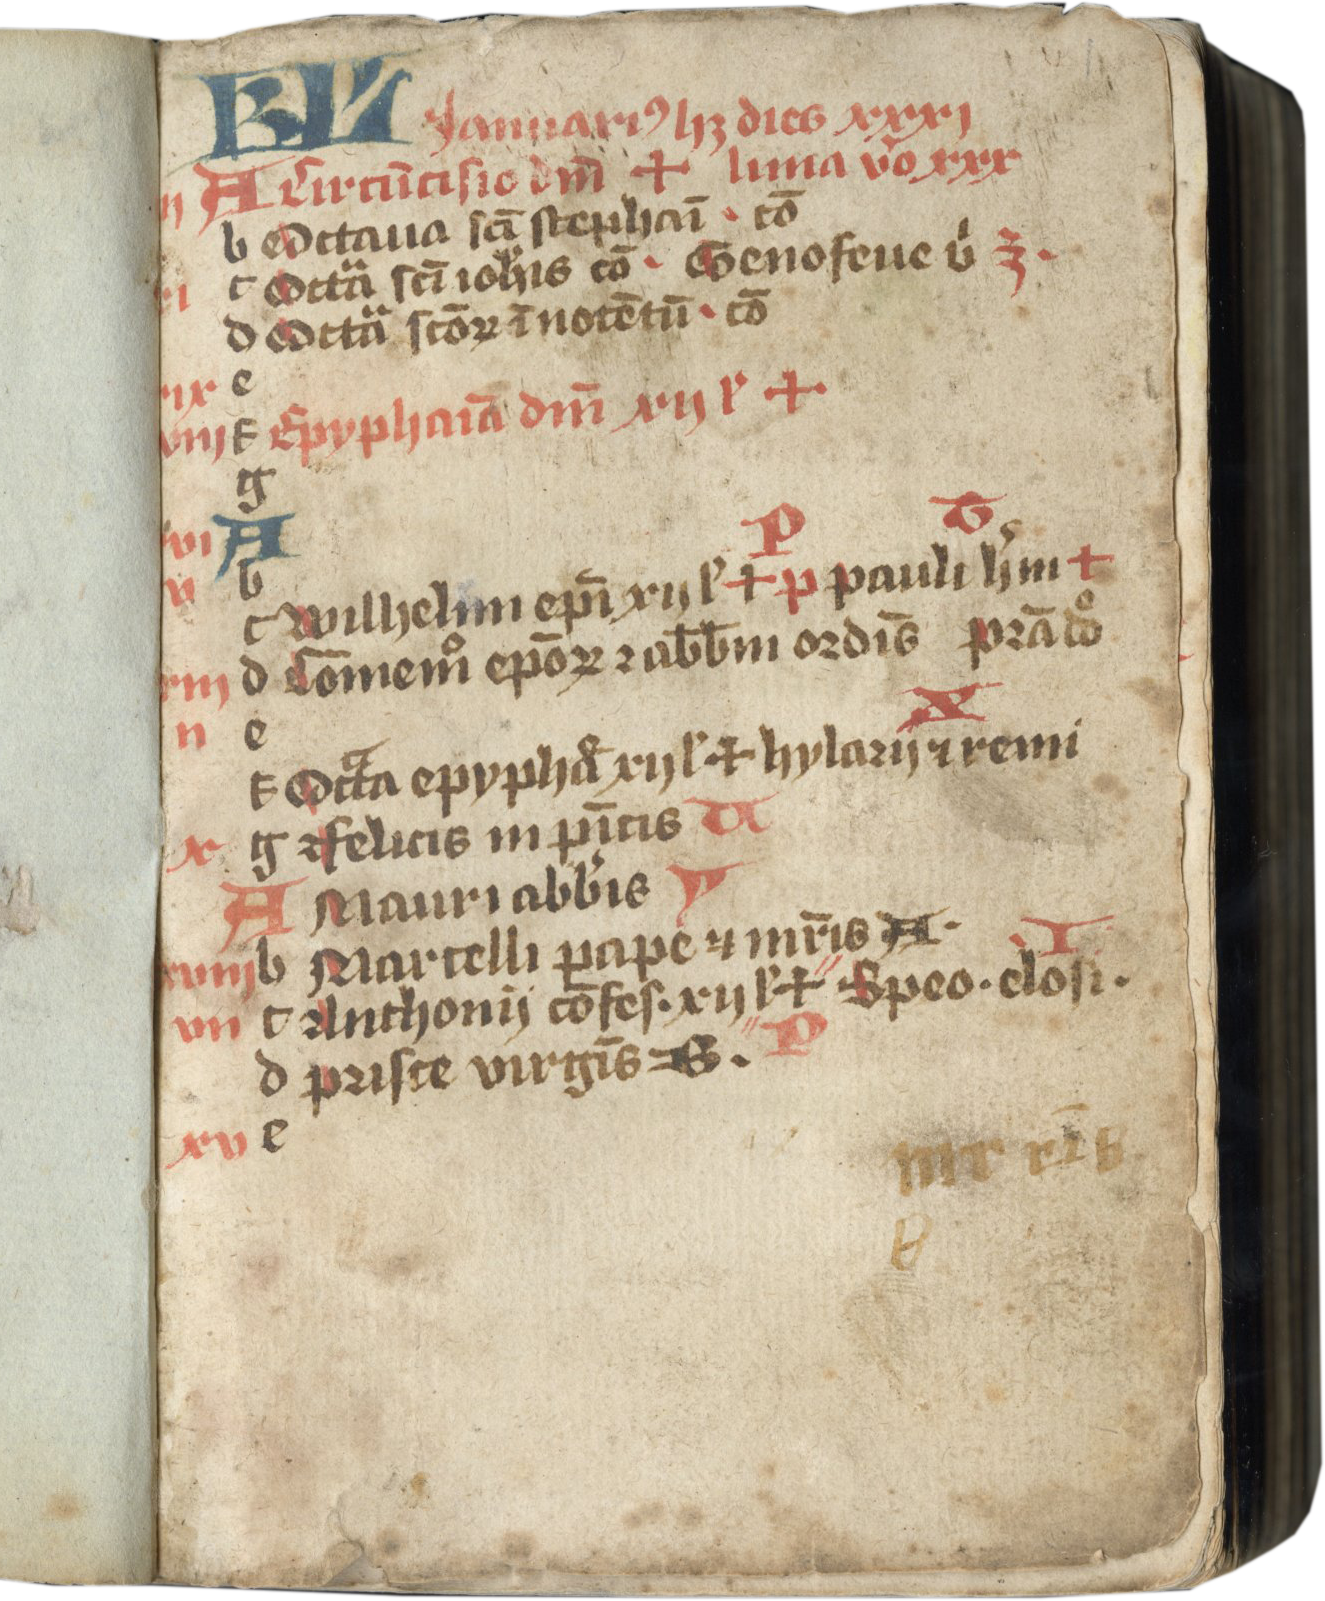 KL Januariꝰ hꝫ dies xxxi
iii A Circūcisio dm̄ + luna v̊o xxx
b Octaua sc̄i stephani · co̅
xi c Octa̅ sc̄i ioh̄is co̅ · Genofeue v̓ ·
d Octa̅ sc̄oꝝ i̅nocētū · co̅
xix e
viii f Epyphaīa dm̄ xii l̓ +
g
P
xvi A
v b
c Wilhelmi ep̄i xii l̓ + p pauli h̓m +
xiii d Co̅mem̊ ep̄oꝝ ⁊ abb̄m ordīs
ii e
X
f Octa̅ epypha̅ xii l̓ + hylarij ⁊ remi
x g felicis in pi̅cis
A Mauri abb̓is
xviii b Marcelli pape ⁊ mr̄is A · T
vii c Anthonij co̅fes · xii l̓ + Speo · elosi ·
d prisce virgīs P
xv e